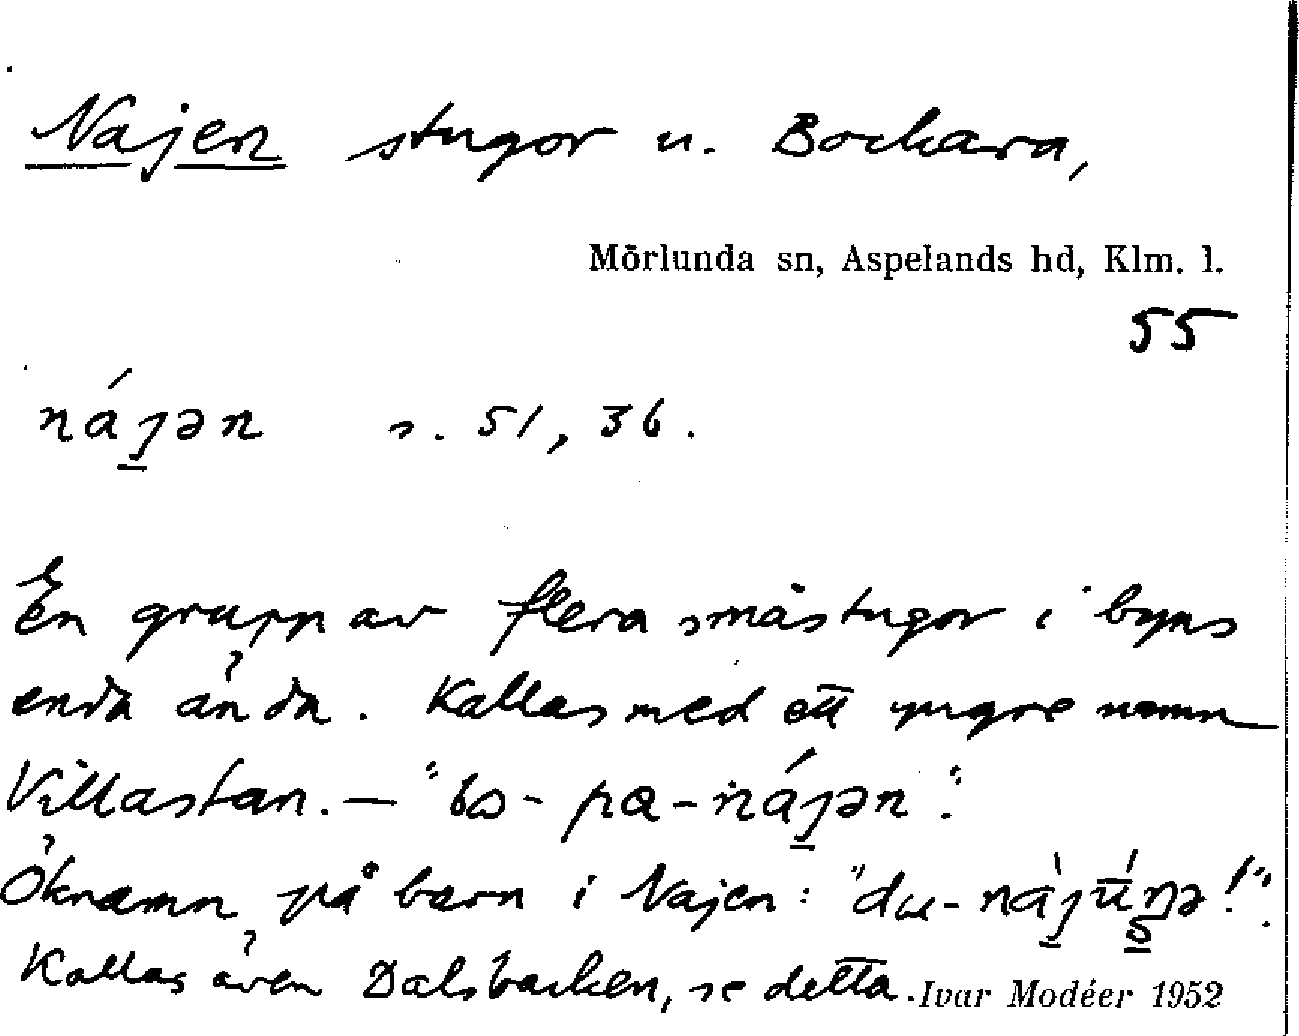 Najen stugor u. Bockara,
Mörlunda sn, Aspelands hd, Klm. l.
55
náȷən s. 51, 36.
En grupp av flera småstugor i byns
enda ända. Kallas med ett yngre namn
Villastan. — "bω-pa-náȷən".
Öknamn på barn i Najen: "du-
Kallas även Dalsbacken, se detta. Ivar Modéer 1952